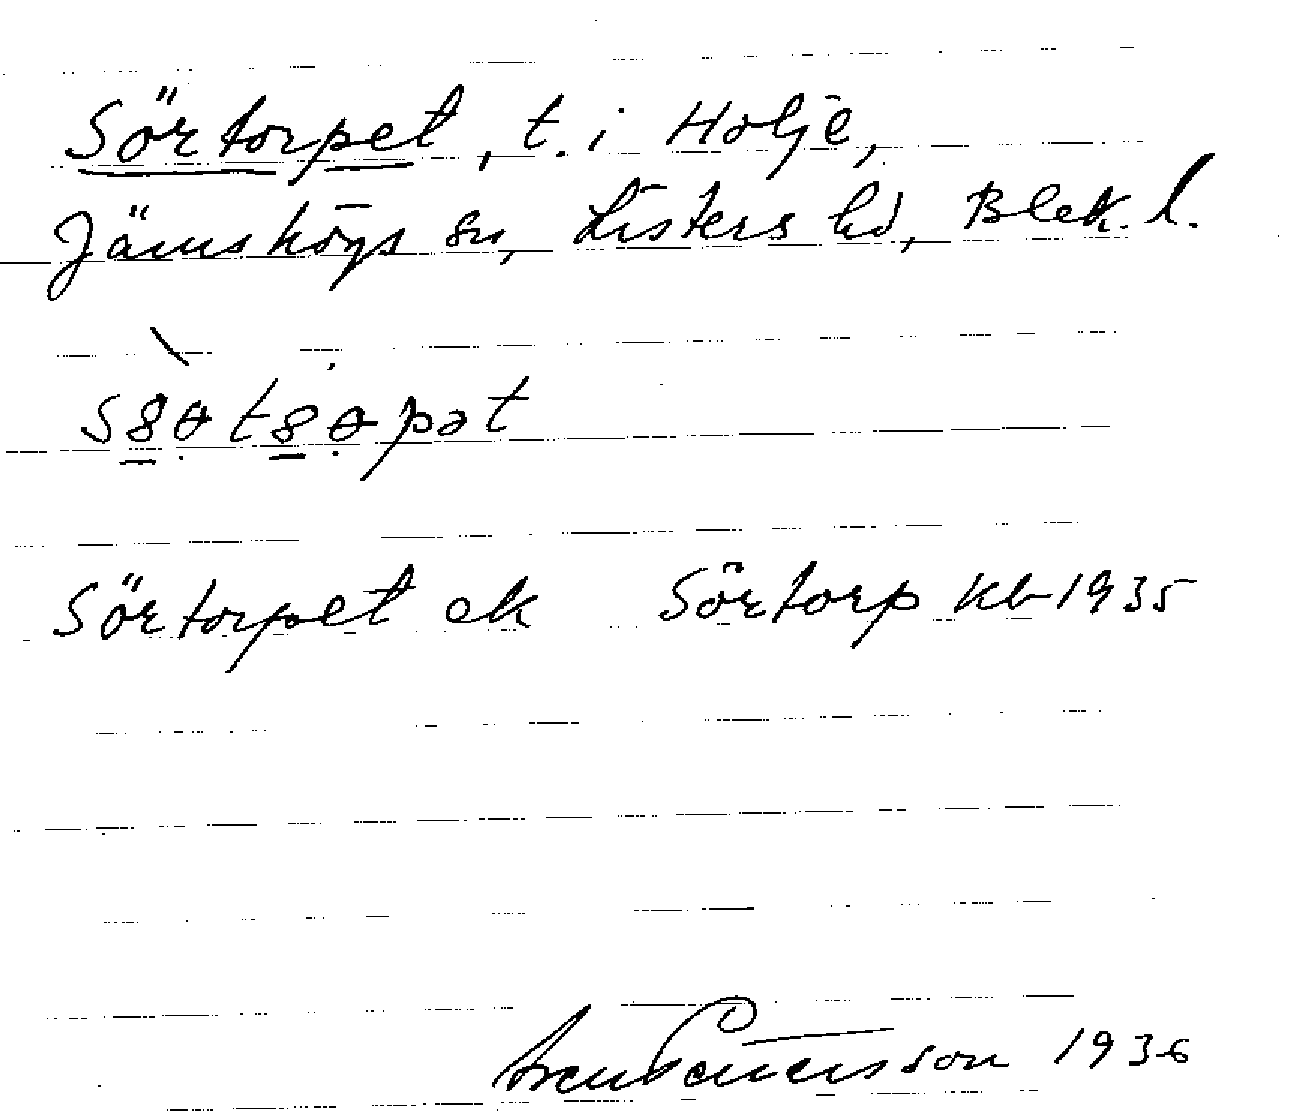 Sörtorpet, t. i Holje,
Jämshögs sn, Listers hd, Blek. l.
Sörtorpet ek Sörtorp kb 1935
1936